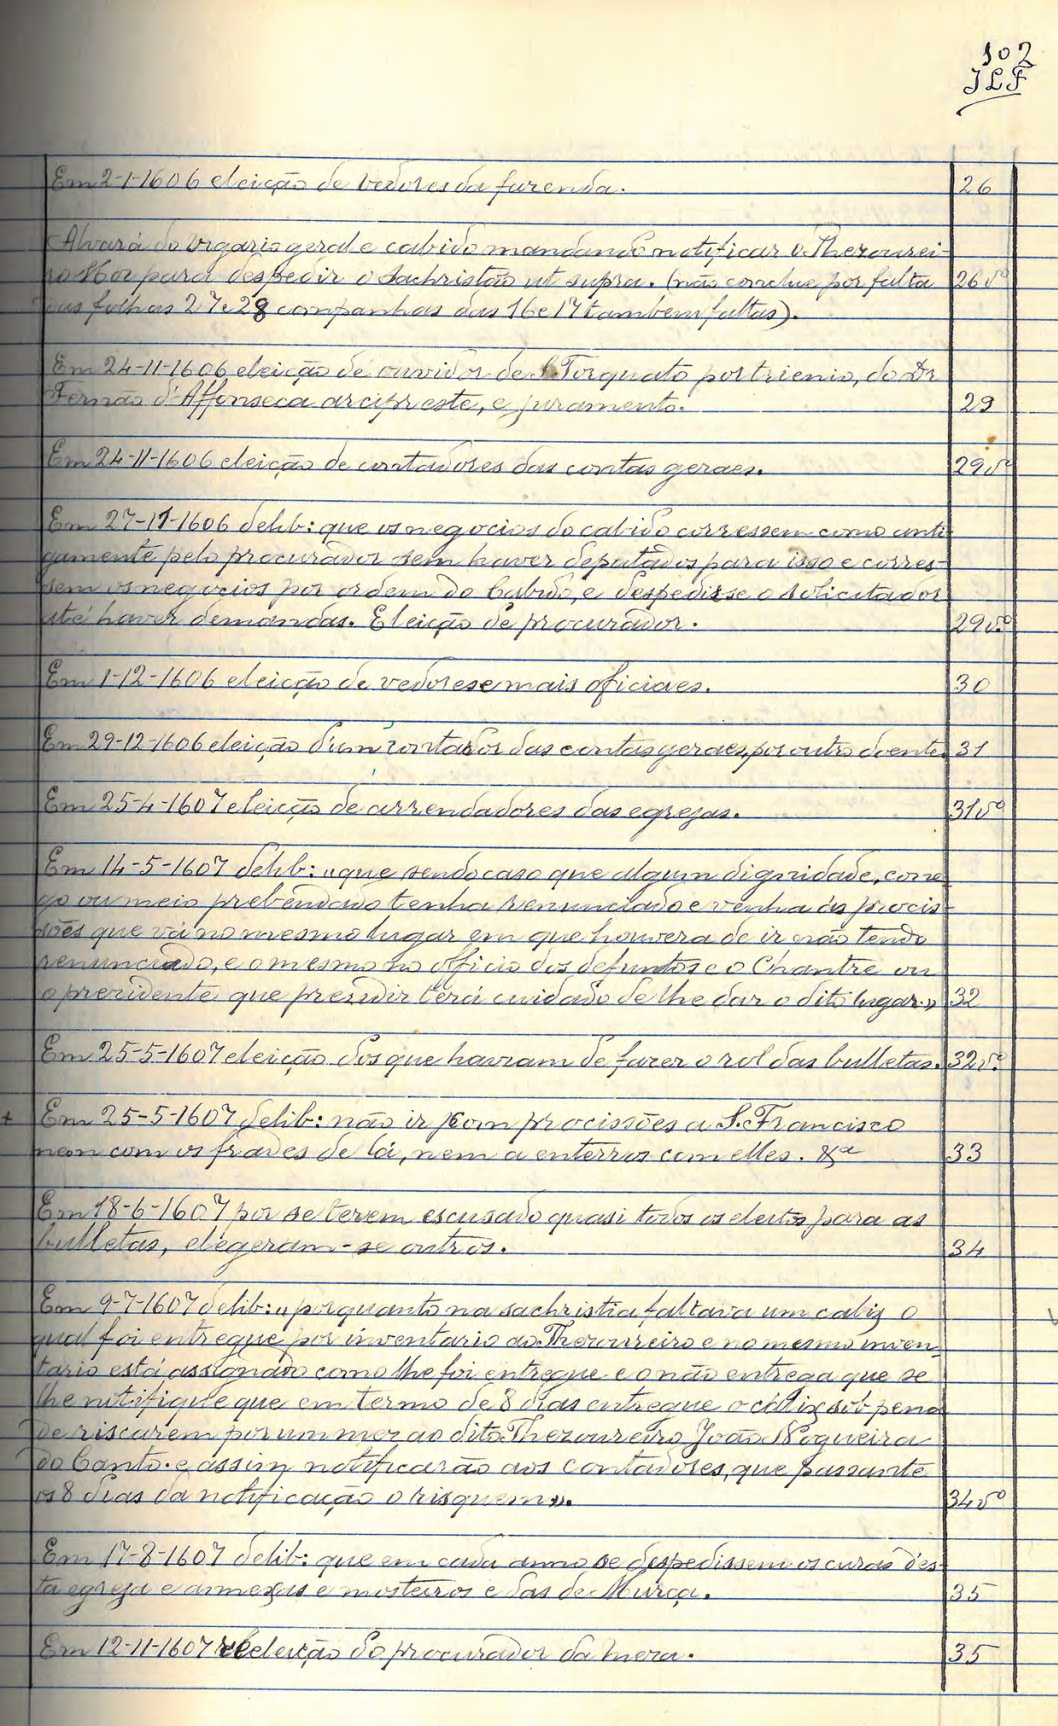 102
JLF
Em 2-1-1606 eleição de vedores da fazenda. 26
Alvará do vigario geral e cabido mandando notificar o Thezourei-
ro Mor para despedir o sachristão ut supra. (não conclue por falta 26vº
das folhas 27 e 28 companhas das 16 e 17 tambem faltas).
Em 24-11-1606 eleição de ouvidor de S. Torquato por trienio, do Dr
Fernão d'Affonseca arcipreste, e juramento. 29
Em 24-11-1606 eleição de contadores das contas geraes. 29vº
Em 27-11-1606 delib: que os negocios do cabido corressem como anti-
gamente pelo procurador sem haver deputados para isso e corres-
sem os negocios por ordem do Cabido, e despedisse o solicitador
até haver demandas. Eleição de procurador. 29vº
Em 1-12-1606 eleição de vedores e mais oficiaes. 30
Em 29-12-1606 eleição d'um contador das contas geraes, por outro doente 31
Em 25-4-1607 eleição de arrendadores das egrejas. 31vº
Em 14-5-1607 delib: "que sendo caso que algum dignidade, cone-
go ou meio prebendado tenha renunciado e venha ás procis-
sões que vá no mesmo lugar em que houvera de ir não tendo
renunciado, e o mesmo no officio dos defuntos e o Chantre ou
o prezidente que presidir terá cuidado de lhe dar o dito lugar.» 32
Em 25-5-1607 eleição dos que haviam de fazer o rol das bulletas. 32vº
+ Em 25-5-1607 delib: não ir com procissões a S. Francisco
nem com os frades de lá, nem a enterros com elles. &ª 33
Em 18-6-1607 por se terem escusado quasi todos os eleitos para as
bulletas, elegeram-se outros. 34
Em 9-7-1607 delib: "porquanto na sachristia faltava um caliz o
qual foi entregue por inventario ao Thezoureiro e no mesmo inven-
tario está assignado como lhe foi entregue e o não entrega que se
lhe notifique que em termo de 8 dias entregue o cáliz sob pena
de riscarem por um mez ao dito Thezoureiro João Nogueira
do Canto. e assim notificarão aos contadores, que passante
os 8 dias da notificação o risquem». 34vº
Em 17-8-1607 delib: que em cada anno se despedissem os curas des-
ta egreja e anexas e mosteiros e das de Murça. 35
Em 12-11-1607 reeleição do procurador da meza. 35